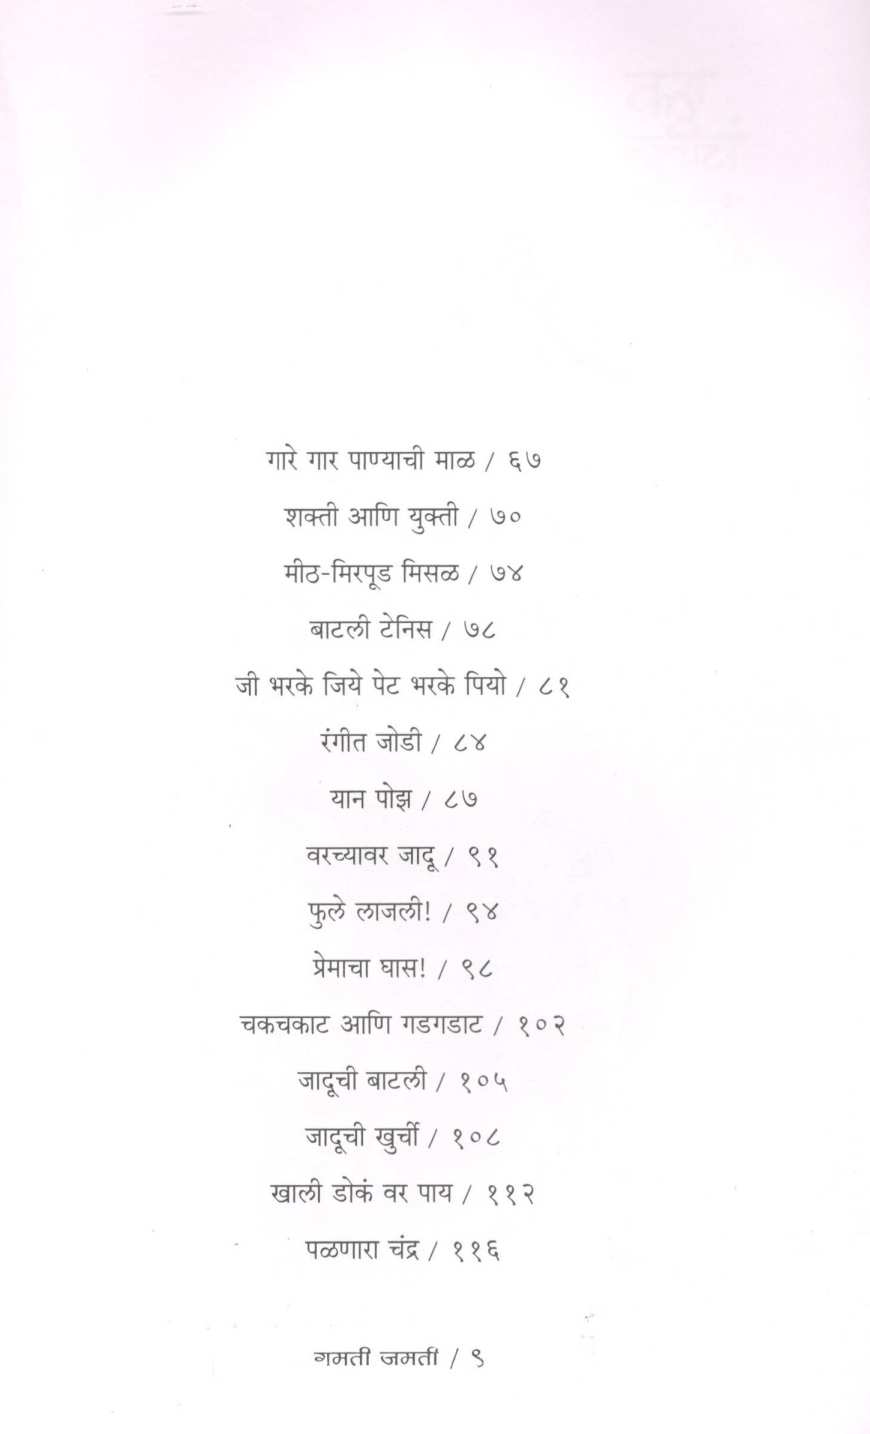 गारे गार पाण्याची माळ / ६७
शक्ती आणि युक्ती / ७०
मीठ-मिरपूड मिसळ / ७४
बाटली टेनिस / ७८
जी भरके जिये पेट भरके पियो / ८१
रंगीत जोडी / ८४
यान पोझ / ८७
वरच्यावर जादू / ९१
फुले लाजली! / ९४
प्रेमाचा घास! / ९८
चकचकाट आणि गडगडाट / १०२
जादूची बाटली / १०५
जादूची खुर्ची / १०८
खाली डोकं वर पाय / ११२
पळणारा चंद्र / ११६
गमती जमती / ९